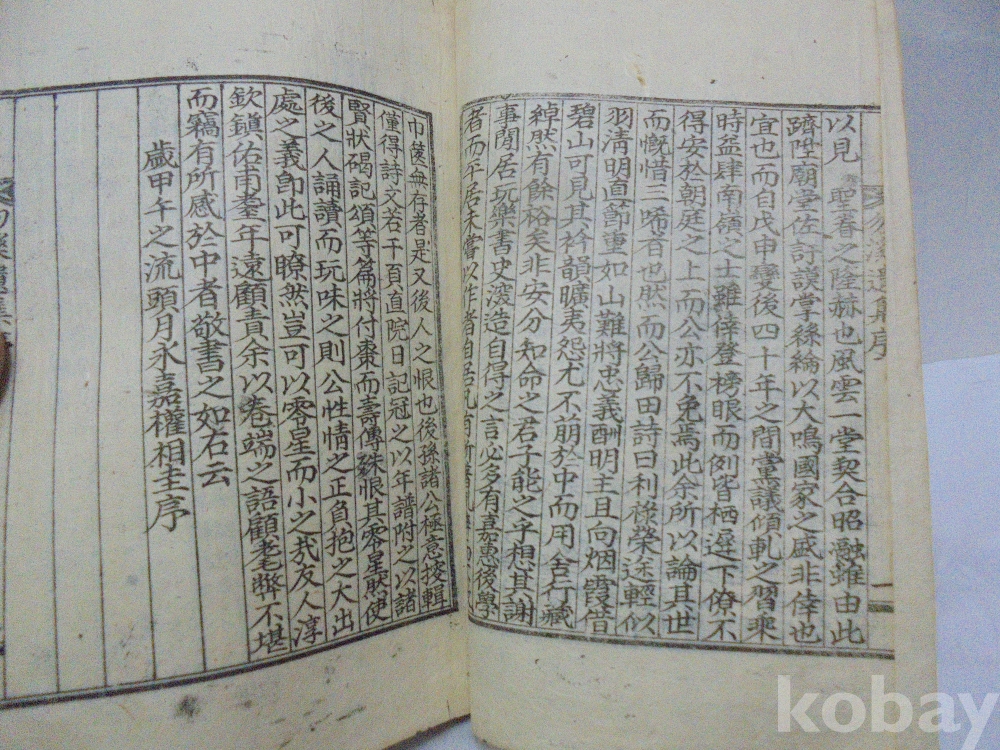 以見 聖眷之隆赫也風雲一堂契合昭融雖由此
躋陞廟堂佐訏謨掌絲綸以大鳴國家之盛非倖也
宜也而自戊申變後四十年之間黨議傾軋之習乘
時益肆南嶺之士雖倖登榜眼而例皆栖遲下僚不
得安於朝庭之上而公亦不免焉此余所以論其世
而慨惜三唏者也然而公歸田詩曰利祿榮途輕似
羽淸明直節重如山難將忠義酬明主且向烟霞借
碧山可見其衿韻曠夷怨尤不萠於中而用舍行藏
綽然有餘裕矣非安分知命之君子能之乎想其謝
事閒居玩樂書史深造自得之言必多有嘉惠後學
者而平居未嘗以作者自居
巾後無存者是又後人之恨也後孫諸公極意按輯
僅得詩文若干頁直院日記冠之以年譜附之以諸
賢狀碣記頌等篇將付棗而壽傳殊恨其零星然使
後之人誦讀而玩味之則公性情之正負抱之大出
處之義卽此可瞭然豈可以零星而小之㢤友人淳
欽鎭佑甫耋年遠顧責余以卷端之語顧耄弊不堪
而竊有所感於中者敬書之如右云
歲甲午之流頭月永嘉權相圭序
溪遺集序
一
kobay